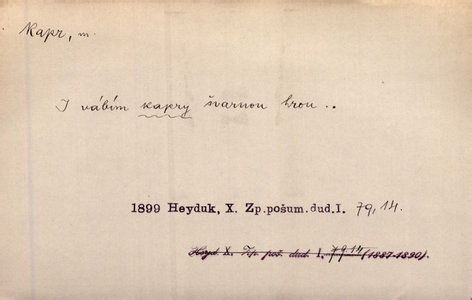 Kapr, m.
I vábím kapry švarnou hrou ..
1899 Heyduk, X. Zp.pošum.dud.I. 79,14.
Heyd. X. Zp. poš. dud. I. 7914 (1887-1890).